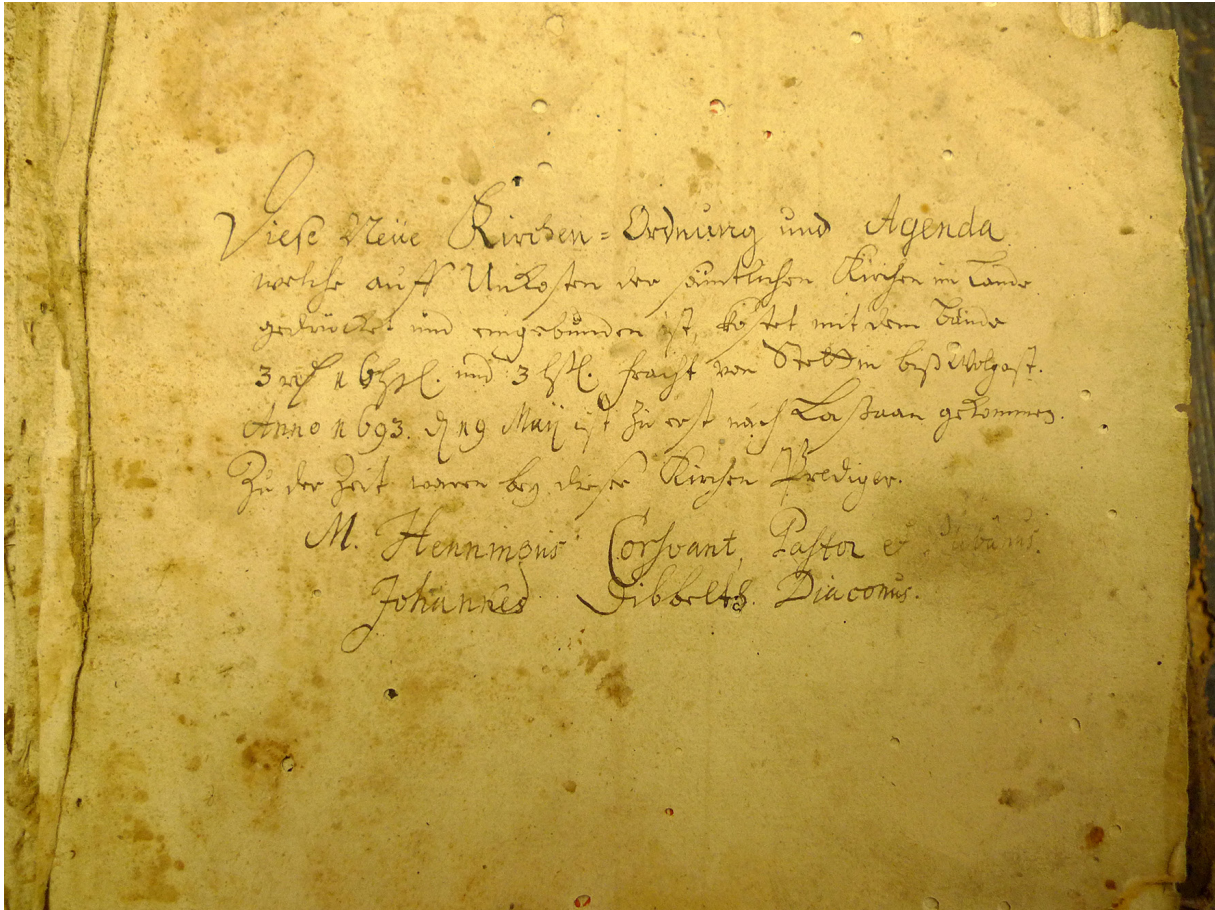 Diese Neue Kirchen=Ordnung und Agenda
welche auff Unkosten der sämtlichen Kirchen im Lande
gedrücket und eingebunden ist, kostet mit dem Bande
3 und 3 ßl. fracht von Stettin biß Wolgast.
Anno 1693. d 19 Maij ist zu erst nach Laßaan gekommen.
Zu der Zeit waren bey dieser Kirchen Prediger.
M. Henningus Corsvant, Pastor et
Johannes Dibbeltß. Diaconus.